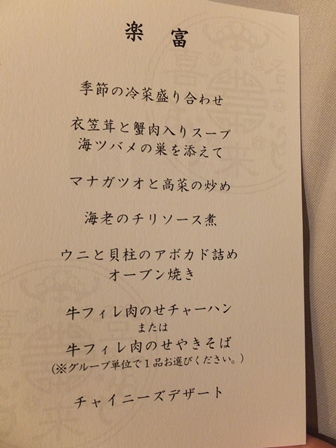 楽 富
季節の冷菜盛り合わせ
衣笠茸と蟹肉入りスープ
海ツバメの巣を添えて
マナガツオと高菜の炒め
海老のチリソース煮
ウニと貝柱のアボカド詰め
オーブン焼き
牛フィレ肉のせチャーハン
または
牛フィレ肉のせやきそば
(※グループ単位で1品お選びください。)
チャイニーズデザート